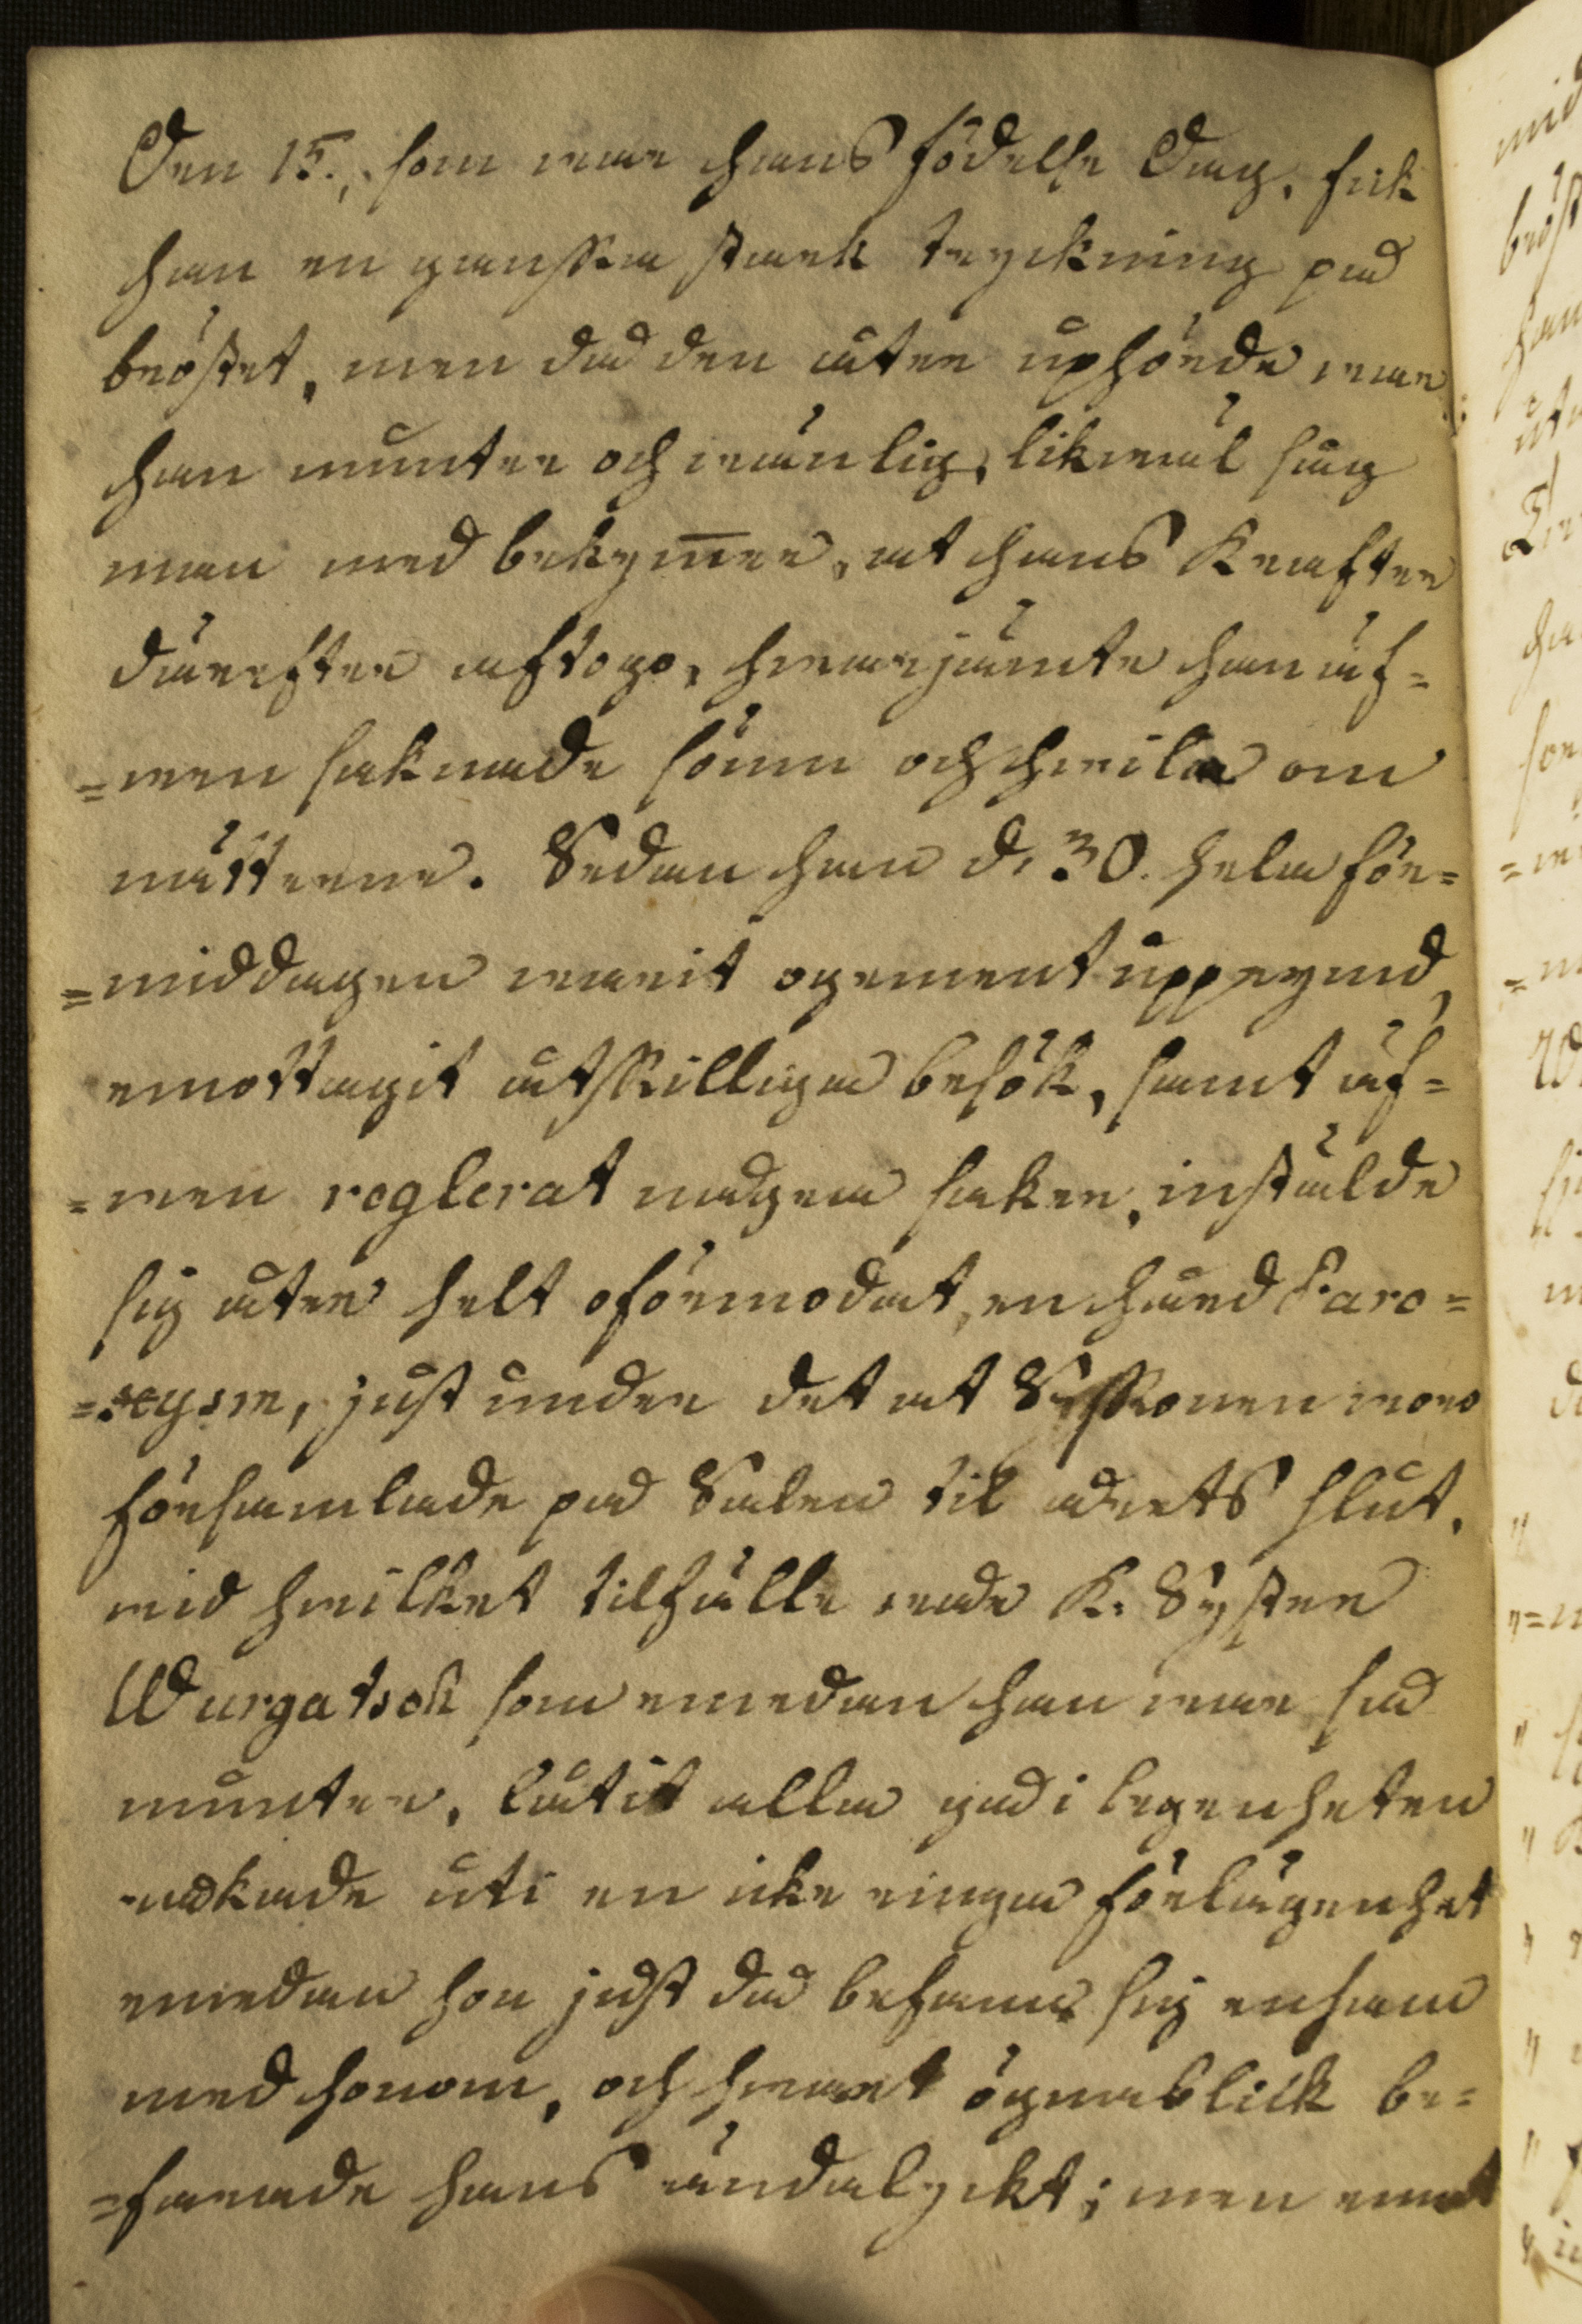 Den 15., som war hans födelse Dag, fick
han en ganska stark tryckning på
bröstet, men då den åter uphörde war
han munter och wänlig, likwäl såg
man med bekym̄er, at hans Krafter
därefter aftogo, hwarjämte han äf=
=wen saknade sömn och hwila om
nätterne. Sedan han d. 30. hela för=
=middagen warit ogement upprymd,
emottagit åtskilliga besök, samt äf=
=wen reglerat några saker, instälde
sig åter helt oförmodat, en hård Paro=
=xysm, just under det at Syskonen woro
församlade på Salen til årets slut,
wid hwilket tilfälle wår K. Syster
Wurgatsch som emedan han war så
munter, låtit alla gå i legenheten
råkade uti en icke ringa förlägenhet
emedan hon just då befann sig ensam
med honom, och hwart ögnablick be=
=farade hans ändalyckt; men emot